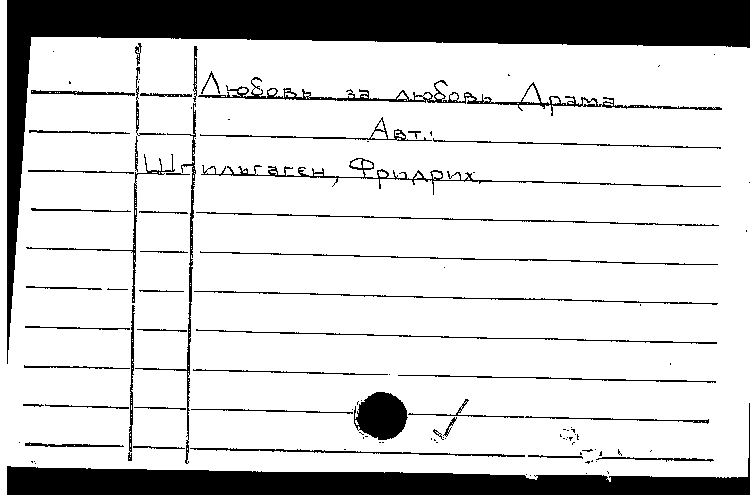 Любовь за любовь Драма
Авт.:
Шпильгаген, Фридрих